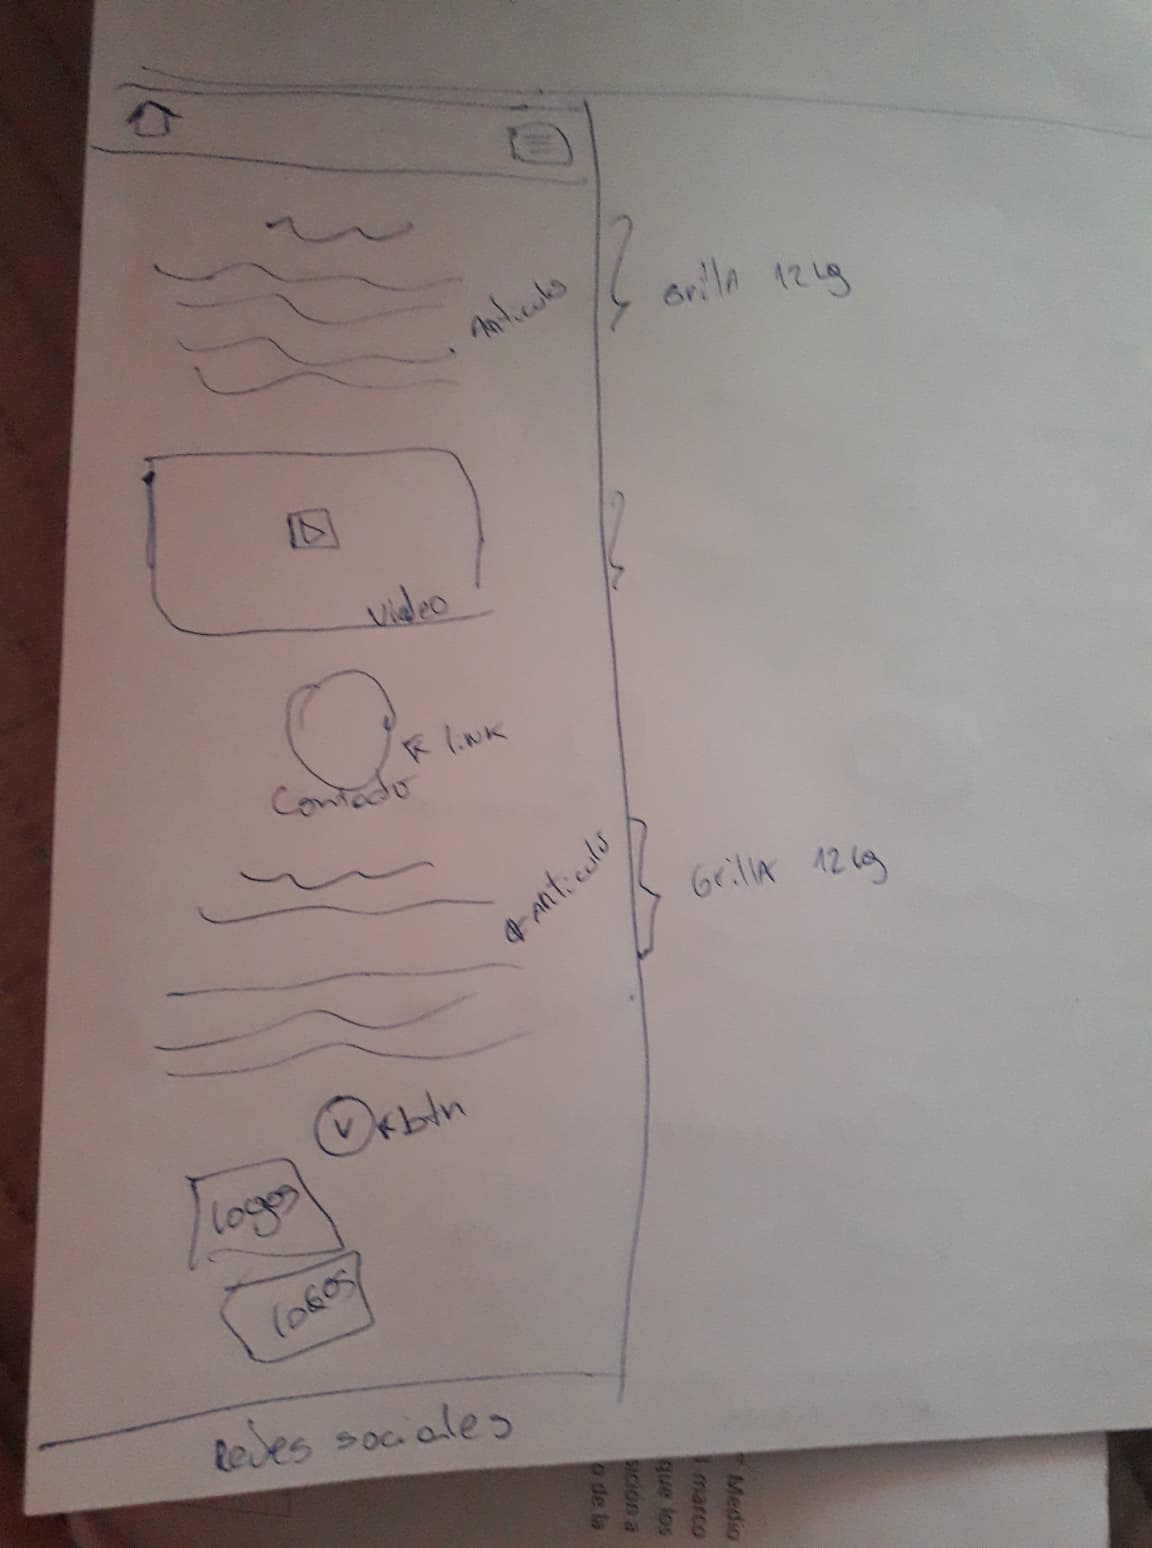 Articulo
Grilla 12 lg
Video
link
Contacto
Articulo
Grilla 12 lg
V
btn
Logos
Logos
Redes sociales
Medio
marco
que los
sición a
o de la